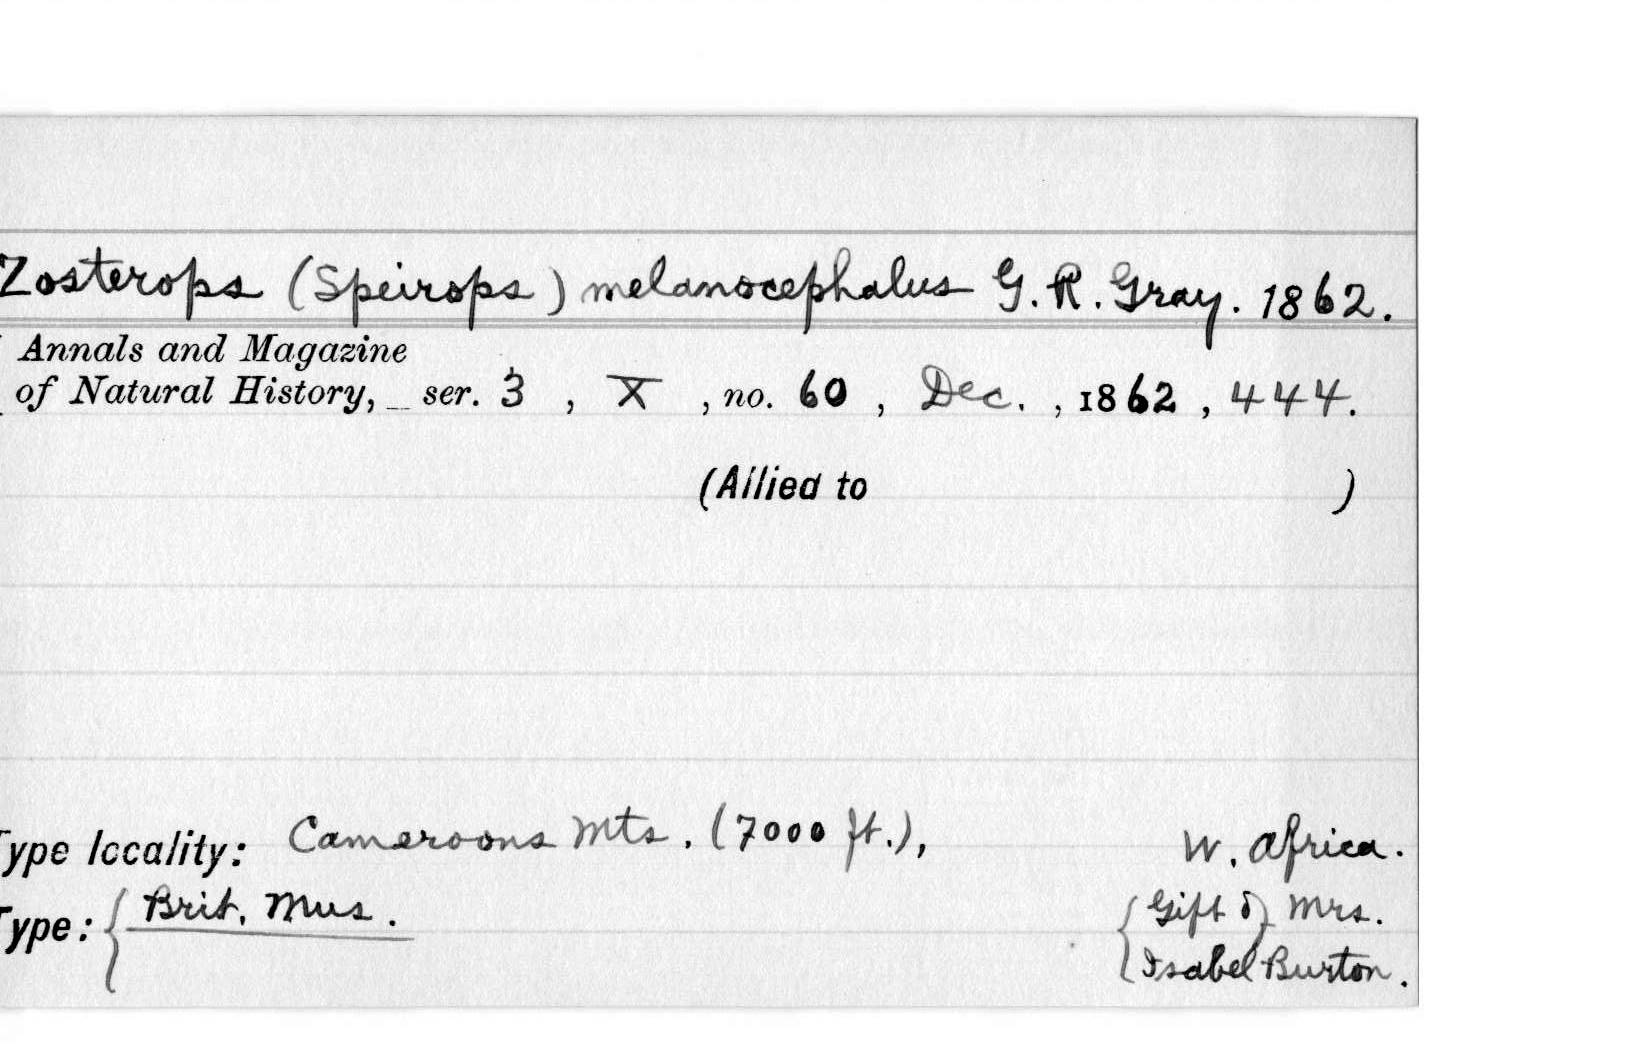 Zosterops (Speirops) melanocephalus G. R. Gray. 1862.
Annals and Magazine
of Natural History, _ ser. 3 , X , no. 60 , Dec. , 1862 , 444.
(Allied to )
Type locality: Cameroons Mts. (7000 ft.), W. Africa.
Type: { Brit. Mus. { Gift of Mrs.
Isabel Burton.